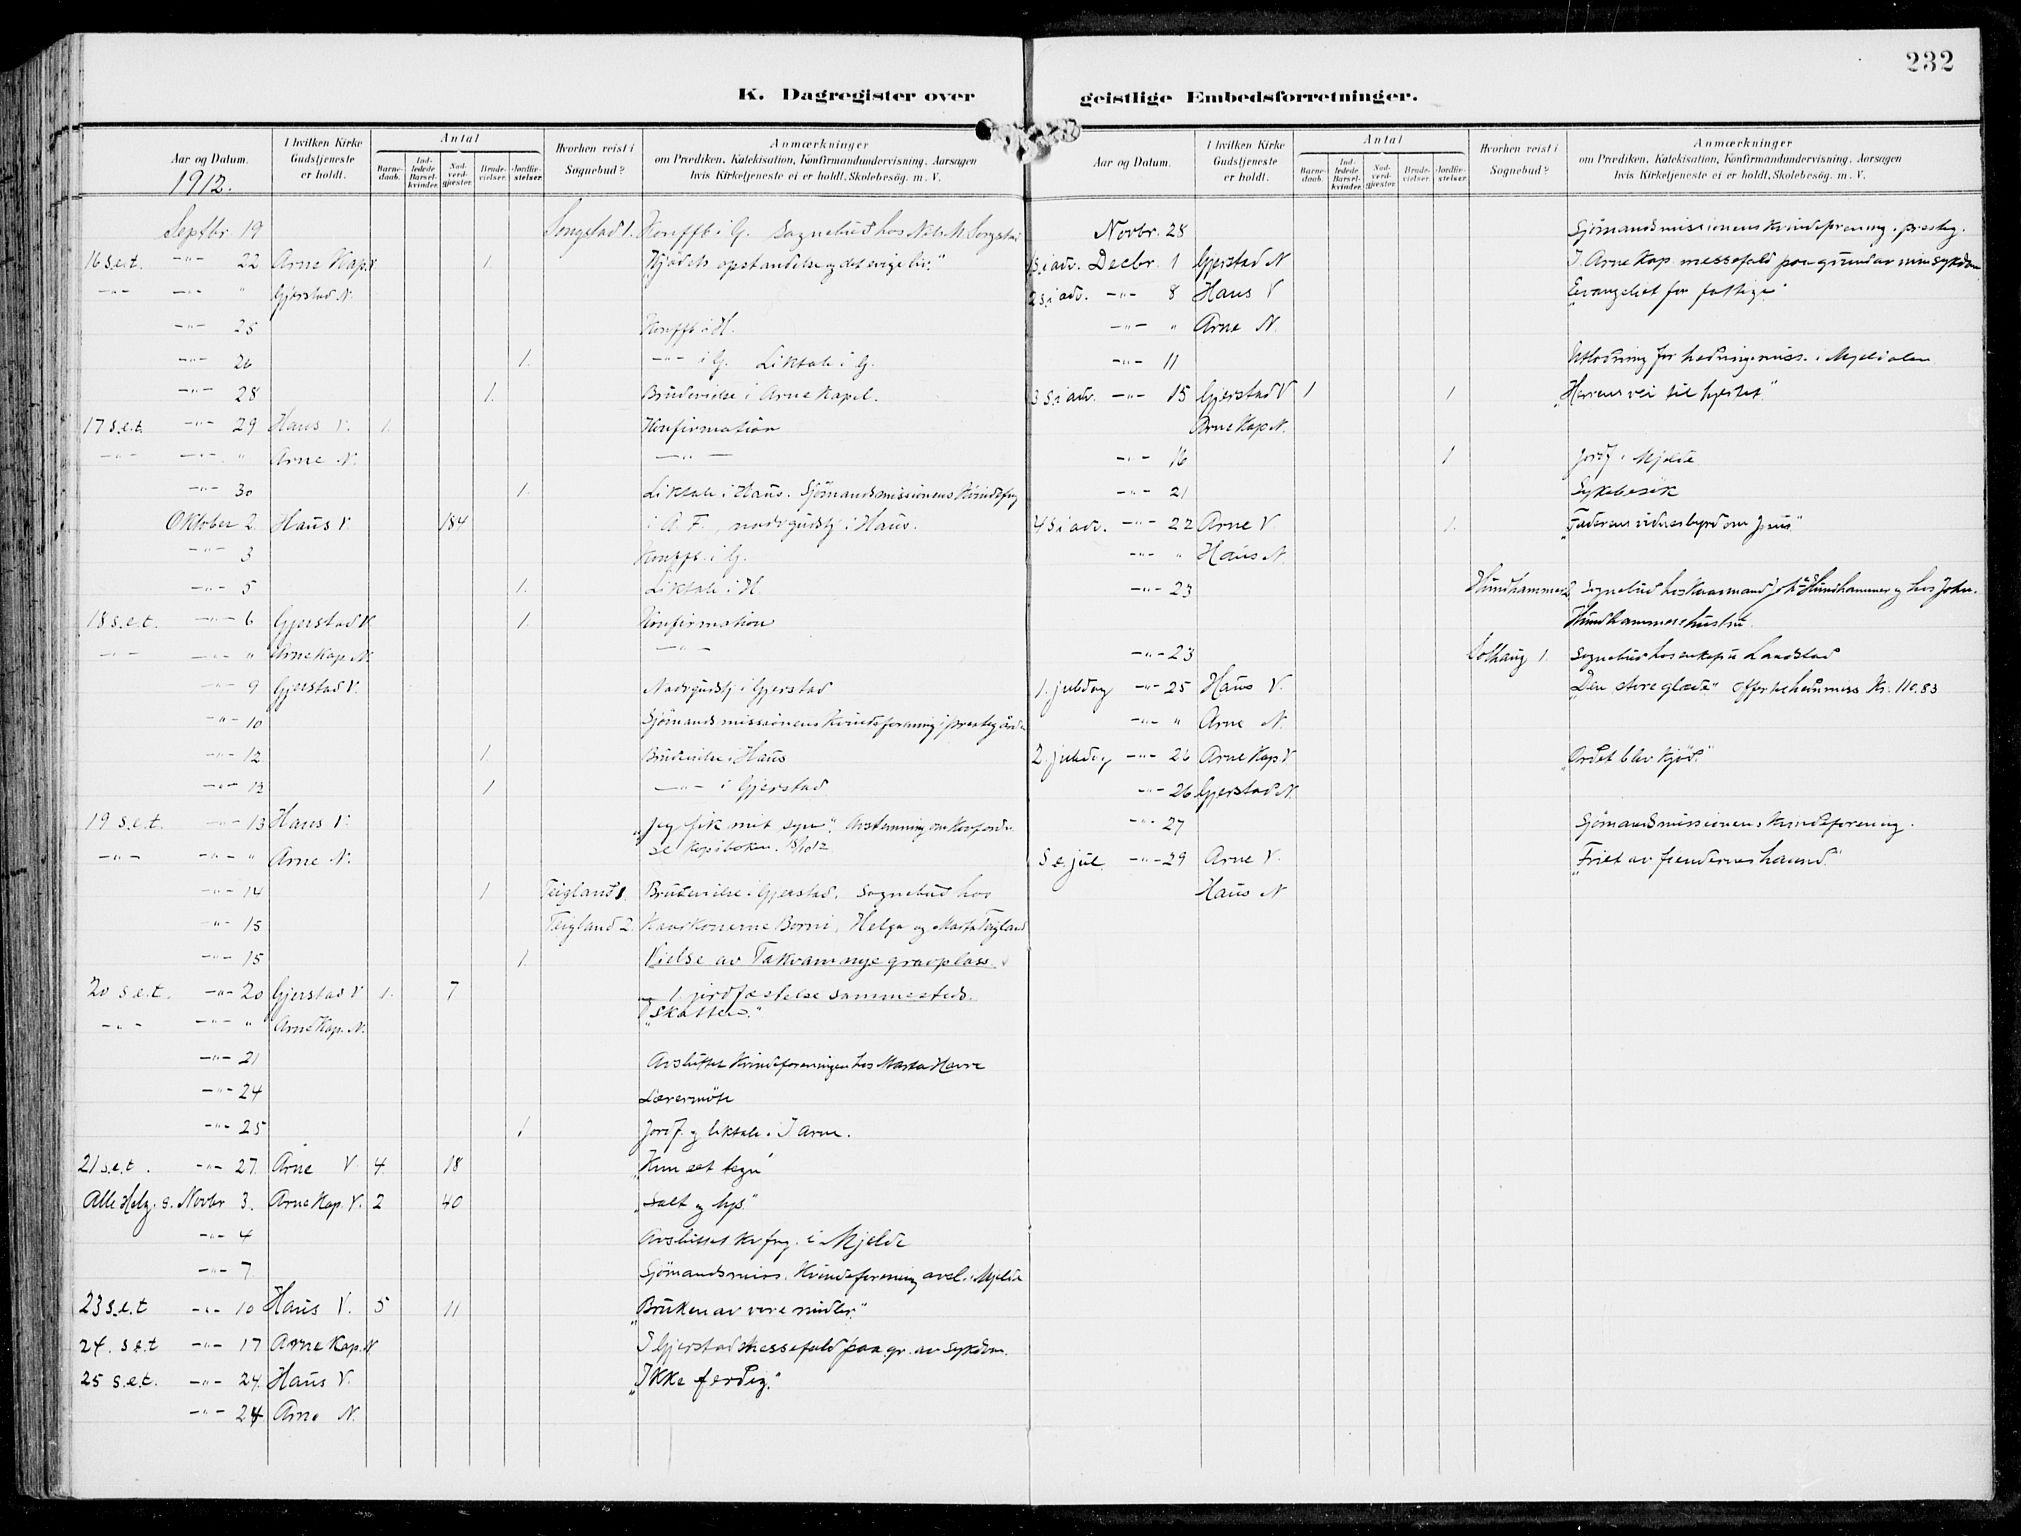 232
K. Dagregister over geistlige Embedsforretninger.
Aar og Datum. I hvilken Kirke Gudstjeneste er holdt. Antal Barnedaab. Indledede Barselkvinder. Nadverdgjester. Brudevielser. Jordfæstelser. Hvorhen reist i Sognebud? Anmærkninger om Prædiken, Katekisation, Konfirmandundervisning, Aarsagen hvis Kirketjeneste ei er holdt, Skolebesøg. m. V.
1912.
Septbr 19 Songstad 1. Konffb i G. Sognebud hos Nils M. Songstad
16 s.e.t. -"- 22 Arne Kap V 1. "Kjødets opstandelse og det evige liv."
-"- -"- " Gjerstad N.
-"- 25 Konffb i H.
-"- 26 1. -"- i G. Liktale i G.
-"- 28 1. Brudevielse i Arne Kapel.
17 s.e.t. -"- 29 Haus V. 1. Konfirmation
-"- -"- " Arne N. -"-
-"- 30 1. Liktale i Haus. Sjömandsmissionens Kvindefng
Oktober 2. Haus V. 184 i A. F., nadvgudstj i Haus.
-"- 3 Konffb i G.
-"- 5 1. Liktale i H.
18 s.e.t. -"- 6 Gjerstad V 1. Konfirmation
-"- -"- " Arne Kap. N. -"-
-"- 9 Gjerstad V. Nadvgudstj i Gjerstad
-"- 10 Sjömandsmissionens Kvindeforening i prestegården
-"- 12. 1. Brudevielse i Haus
-"- 12 1 -"- i Gjerstad
19 s.e.t. -"- 13 Haus V. "Jeg fik mit syn". Avstemning om
se kopiboken.
-"- -"- " Arne N.
-"- 14 1 Teigland 1. Brudevielse i Gjerstad. Sognebud hos
-"- 15 Teigland 2. Kaarkonerne Borni, Helga og Marta Teigland
-"- 15 1. Vielse av Takvam nye gravplass.
20 s.e.t. -"- 20 Gjerstad V 1. 7 1 jordfæstelse sammesteds.
"Skatten."
-"- -"- " Arne Kap. N.
-"- 21 Avsluttet Kvindeforeningen hos Marta Havre
-"- 24 Lærermöte
-"- 25 1 Jordf. og liktale i I Arne.
21 s.e.t. -"- 27. Arne V. 4. 18 "Kun set tegn"
Alle Helg. s. Novbr 3. Arne Kap. V. 2 40 "Salt og lys"
-"- 4 Avsluttet Kv fng. i Mjelde
-"- 7. Sjömandsmiss. Kvindeforening avsl. i Mjelde
23 s.e.t -"- 10 Haus V. 5 11 "Bruken av vore midler."
24. s.e.t -"- 17 Arne Kap. N I Gjerstad messefald paa gr. av sykdom.
25 s.e.t. -"- 24. Haus V. "Ikke færdig."
-"- 24 Arne N.
Aar og Datum. I hvilken Kirke Gudstjeneste er holdt. Antal Barnedaab. Indledede Barselkvinder. Nadverdgjester. Brudevielser. Jordfæstelser. Hvorhen reist i Sognebud? Anmærkninger om Prædiken, Katekisation, Konfirmandundervisning, Aarsagen hvis Kirketjeneste ei er holdt, Skolebesøg. m. V.
Novbr. 28 Sjömandsmissionens Kvindeforening i presteg.
1 s i adv. Decbr. 1 Gjerstad N I Arne Kap. messefald paa grund av min sykdom
2 s i adv. -"- 8 Haus V "Evangeliet for fattige"
-"- " Arne N.
-"- 11 Utlodning for hedningemiss. i Mjeldalen
3 s i adv. -"- 15 Gjerstad V 1 1 "Herrens vei til hjertet."
Arne Kap N.
-"- 16 1 Jordf. i Mjelde
-"- 21 Sykebesök
4 s i adv. -"- 22 Arne V. 1. "Faderens vidnesbyrd om Jesus"
-"- " Haus N.
-"- 23 Hundhammer 2. Sognebud hos Kaarmand Hundhammer og hos John
Hundhammers hustru.
-"- 23 1. Sognebud hos Landstad
1. juledag -"- 25 Haus V. "Den store glæde" Offer Kr. 110.83
-"- " Arne N.
2. juledag -"- 26 Arne Kap V "Ordet blev kjöd."
-"- 26 Gjerstad N.
-"- 27 Sjömandsmissionens Kvindeforening.
S e. jul -"- 29 Arne V. "Friet av fiendernes haand."
Haus N